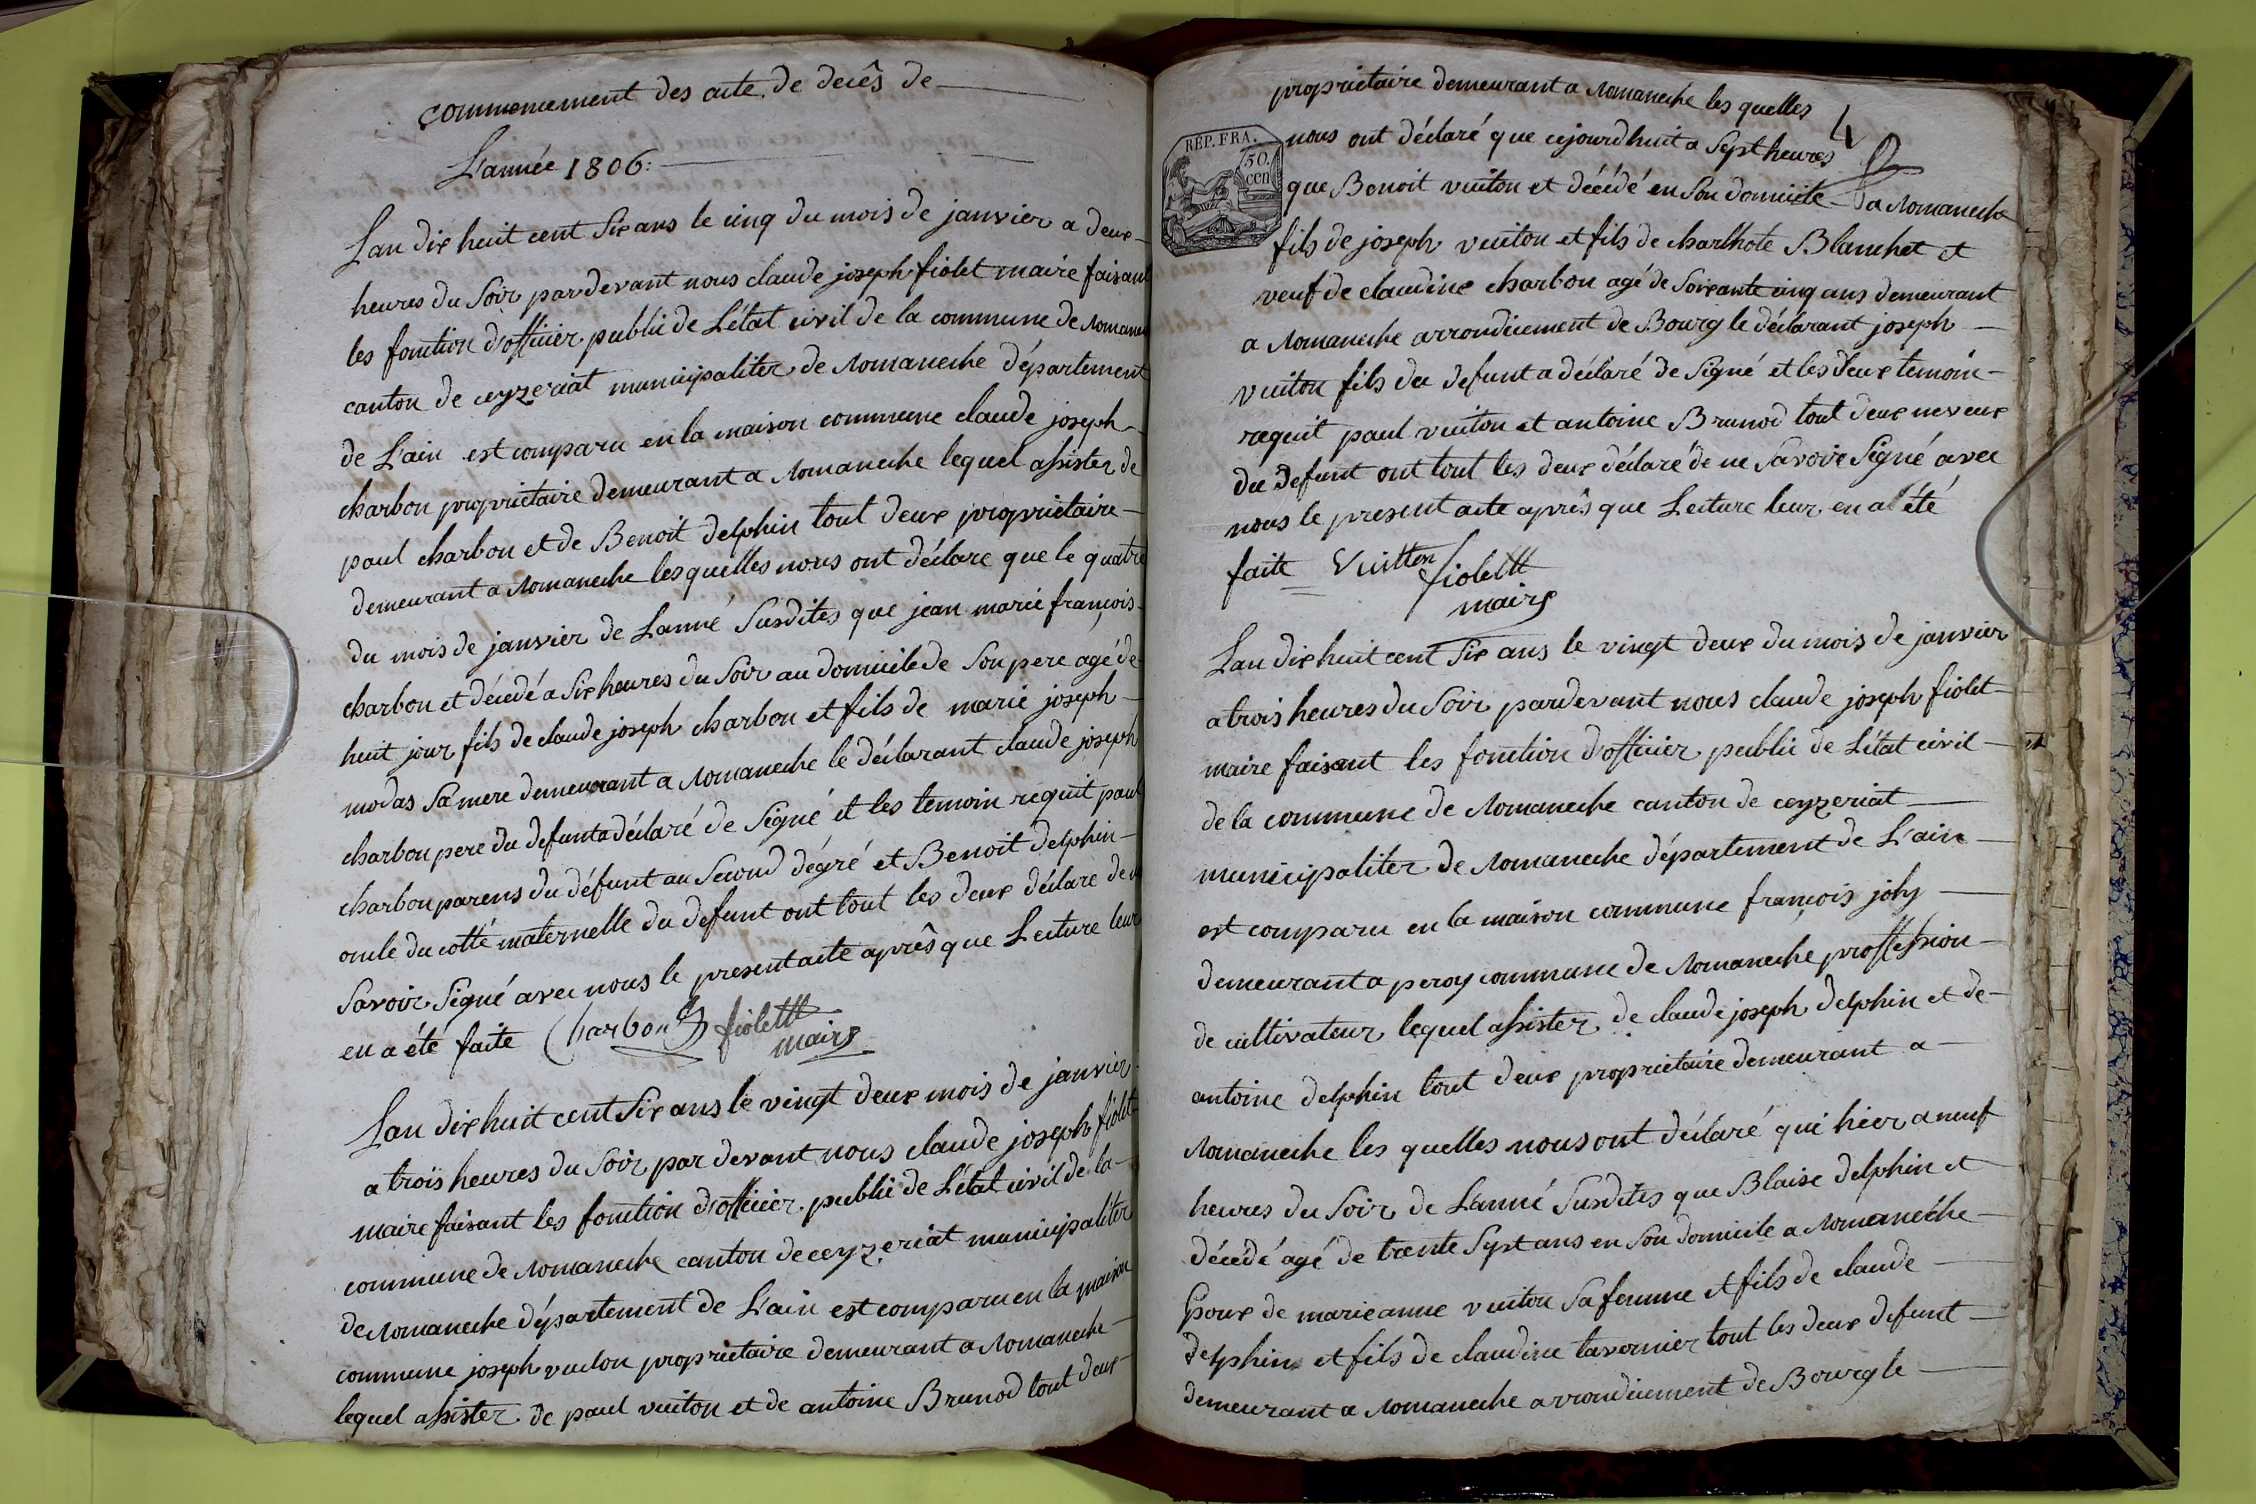 commencement des acte de decês de
L'année 1806:
Lan dix huit cent Six ans le cinq du mois de janvier a deux
heures du Soir pardevant nous claude joseph fiolet maire faisant
les fonction d'officier public de L'état civil de la commune de Romane
canton de ceyzeriat municipaliter de Romaneche département
de L'ain est comparu en la maison commune claude joseph
charbon propriétaire demeurant a Romaneche lequel assister de
paul charbon et de Benoit delphin tout deux propriétaire
demeurant a Romaneche lesquelles nous ont déclare que le quatre
du mois de janvier de Lanné Susdites que jean marie françois
charbon et décédé a Six heures du Soir au domicile de Son pere agé de
huit jour fils de claude joseph charbon et fils de marie joseph
modas Sa mere demeurant a Romaneche le déclarant claude joseph
charbon pere du defunt a déclaré de Signé et les temoin requit paul
charbon parens du défunt au Second dégré et Benoit delphin
oncle du cotté maternelle du defunt ont tout les deux déclare de
Savoir Signé avec nous le present acte aprês que Lecture leur
en a été faite Charbon fiolet
maire
Lan dix huit cent Six ans le vingt deux mois de janvier
a trois heures du Soir par devant nous claude joseph fiolet
maire faisant les fonction d'officier public de L'état civil de la
commune de Romaneche canton de ceyzeriat municipaliter
de Romaneche département de L'ain est comparu en la maison
commune joseph vuiton propriétaire demeurant a Romaneche
lequel assister de paul vuiton et de antoine Brunod tout deux
propriétaire demeurant a Romaneche les quelles
4
RÉP. FRA.
50.
cen
nous ont déclaré que cejourdhuit a Sept heures
que Benoit vuiton et décédé en Son domicile a Romaneche
fils de joseph vuiton et fils de charlhote Blanchet et
veuf de claudine charbon agé de Soixante cinq ans demeurant
a Romaneche arrondicement de Bourg le déclarant joseph
vuiton fils du defunt a déclaré de Signé et les deux temoin
requit paul vuiton et antoine Brunod tout deux neveux
du defunt ont tout les deux déclaré de ne Savoir Signé avec
nous le present acte aprês que Lecture leur en a été
faite Vuitton fiolet
maire
Lan dix huit cent Six ans le vingt deux du mois de janvier
a trois heures du Soir pardevant nous claude joseph fiolet
maire faisant les fonction d'officier public de L'état civil
de la commune de Romaneche canton de ceyzeriat
municipaliter de Romaneche département de L'ain
est comparu en la maison commune françois joly
demeurant a peroy commune de Romaneche proffession
de cultivateur lequel assister de claude joseph delphin et de
antoine delphin tout deux propriétaire demeurant a
Romaneche les quelles nous ont déclaré qui hier a neuf
heures du Soir de Lanné Susdites que Blaise delphin et
décédé agé de trente Sept ans en Son domicile a Romaneche
Epoux de marie anne vuiton Sa femme et fils de claude
delphin et fils de claudine tavernier tout les deux defunt
demeurant a Romaneche arrondicement de Bourg le